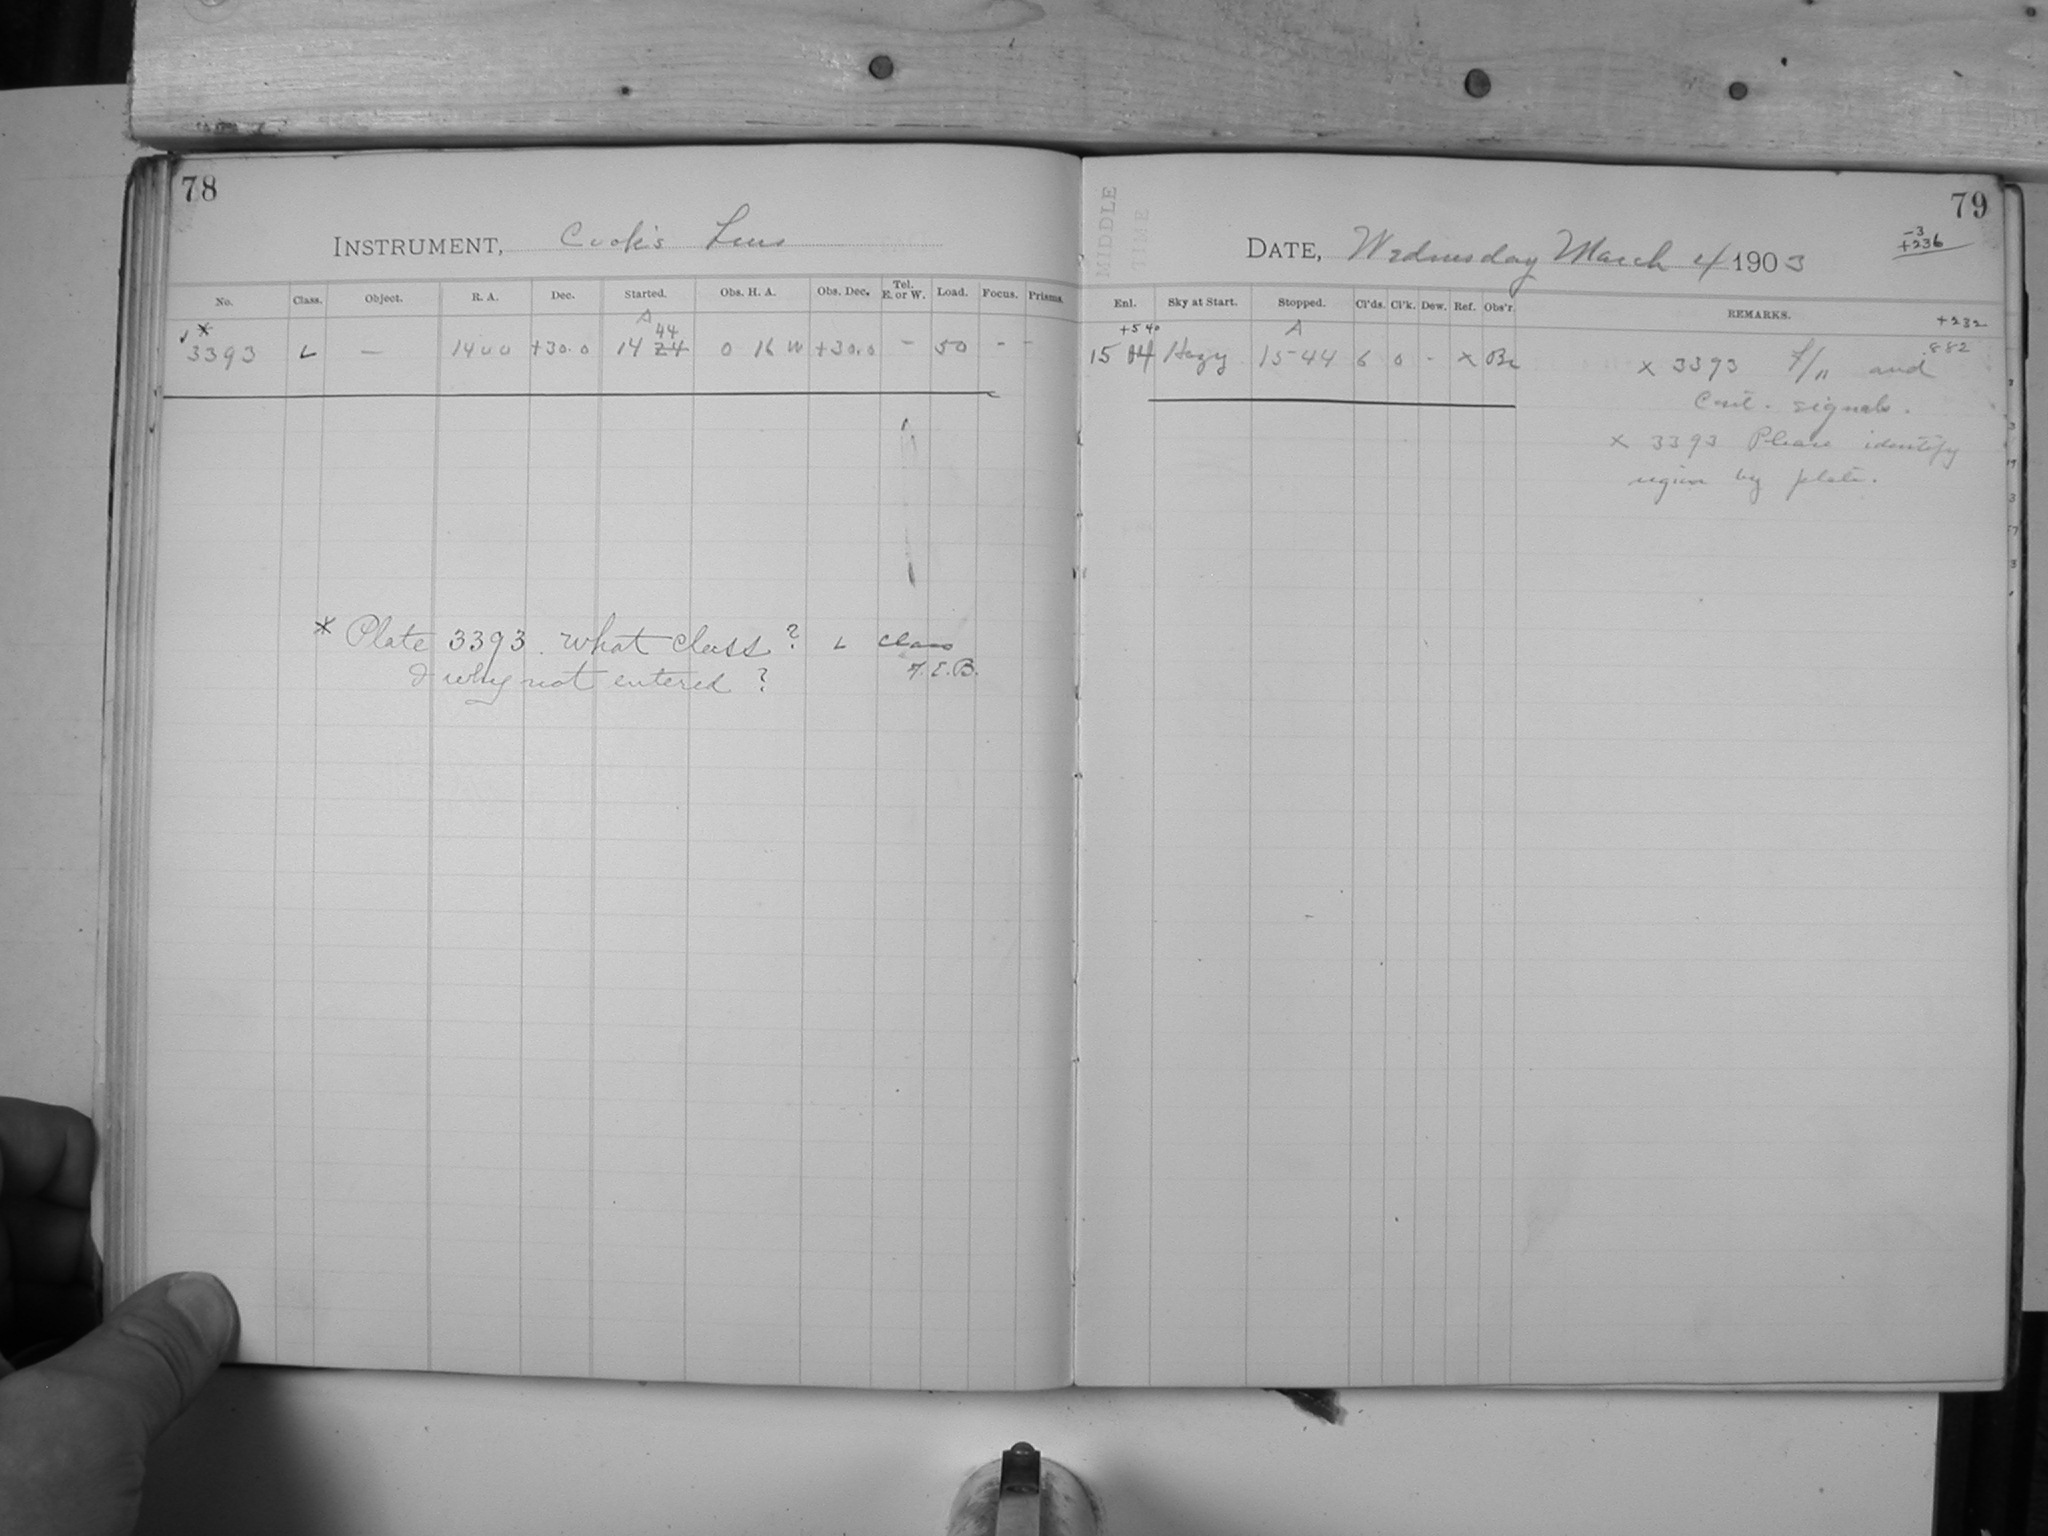 78
INSTRUMENT, Cook's Lens
No. Class. Object. R. A. Dec. Started. Obs. H. A. Obs. Dec. Tel. E. or W. Load. Focus. Prisms.
A
* 44
√ 3393 L — 14 00 +30.0 14 24 0 16 W +30.0 - 50 - -
* Plate 3393. What class? L class
& why not entered? F.E.B.
MIDDLE
TIME
79
DATE, Wednesday March 4 1903
-3
+236
Enl. Sky at Start. Stopped. Cl'ds. Cl'k. Dew. Ref. Obs'r. REMARKS.
+232
+540 A
.882
15 Hazy 15 44 6 0 - x Br x 3393 F/11 and
Cont. signals.
x 3393 Please identify
region by plate.